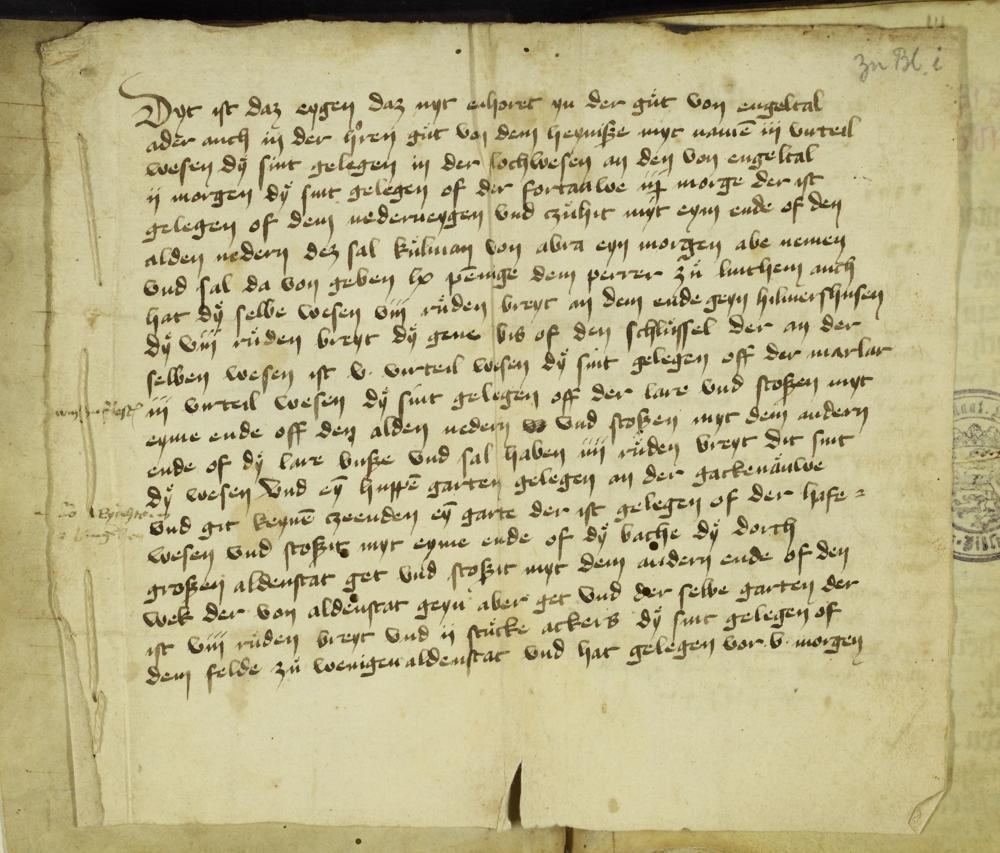 zu Bl. i
Dyt ist daz eygen daz nyt enhoret yn der gůt von engeltal
ader auch in der h'ren gůt von dem heynisze myt namē iii virteil
wesen dÿ sint gelegen in der lochwesen an den von engeltal
ii morgen dÿ sint gelegen of der fortauwe morge der ist
gelegen of dem nederneygen vnd czůhit myt eym ende of den
alden nedern dez sal kůlman von abra eyn morgen abe nemen
vnd sal da von geben lx pēnige dem perrer zů lintheym auch
hat dÿ selbe wesen viii růden breyt an dem ende geyn hilmershusen
dÿ viii růden breyt dÿ gene bis of den schlůssel der an der
selben wesen ist v. virteil wesen dÿ sint gelegen off der marlar
iii virteil wesen dÿ sint gelegen off der lare vnd stoszen myt
eyme ende off den alden nedern vnd stoszen myt dem andern
ende of dÿ lare busze vnd sal haben iiii růden breyt dit sint
dÿ wesen vnd eȳ huppē garten gelegen an der gackenauwe
vnd git keynē czeenden eȳ garte der ist gelegen of der hase=
wesen vnd stoszit myt eyme ende of dÿ bache dÿ dorch
groszen aldenstat get vnd stoszit myt dem andern ende of den
wek der von aldenstat geyn aber get vnd der selbe garten der
ist viii růden breyt vnd ii stůcke ackers dÿ sint gelegen of
dem felde zů wenigen aldenstat vnd hat gelegen vor v. morgen